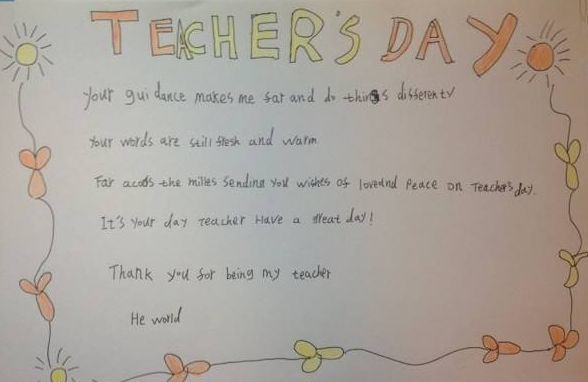 TEACHER'S DAY
Your guidance makes me far and do things differenty
Your words are still flesh and warm
Far acods the milles sending you wishes of loveand Peace on Teacher's day.
It's Your day Teacher Have a great day!
Thank you for being my teacher
He world